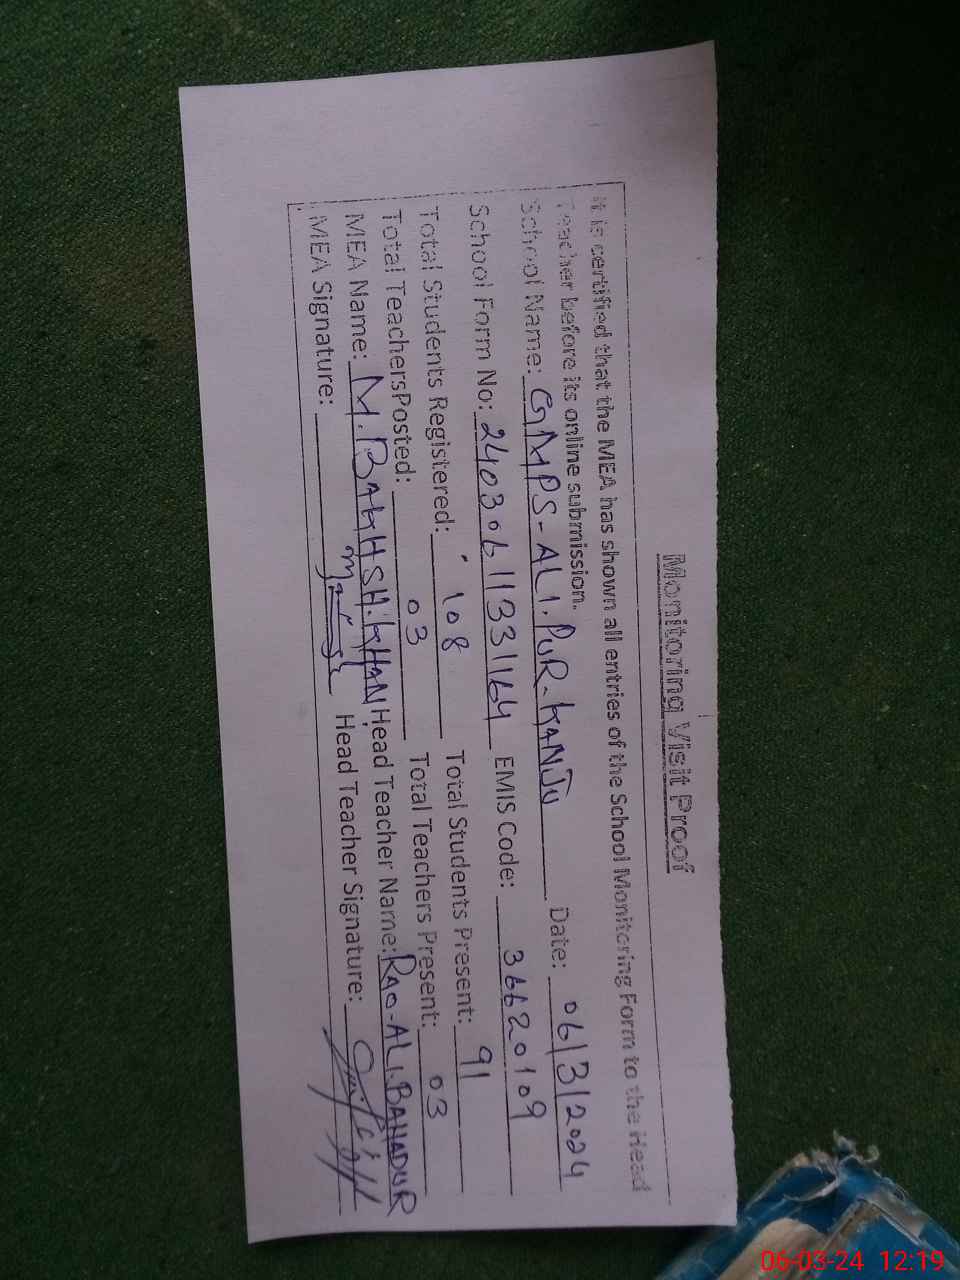 Monitoring Visit Proof
It is certified that the MEA has shown all entries of the School Monitoring Form to the Head
Teacher before its online submission.
School Name: GMPS-ALI.PUR.KANJU Date: 06/3/2024
School Form No: 24030611331164 EMIS Code: 36620109
Total Students Registered: 108 Total Students Present: 91
Total TeachersPosted: 03 Total Teachers Present: 03
MEA Name: M.BAKHSH.KHAN Head Teacher Name: RAO-ALI.BAHADUR
MEA Signature: Head Teacher Signature:
06-03-24 12:19